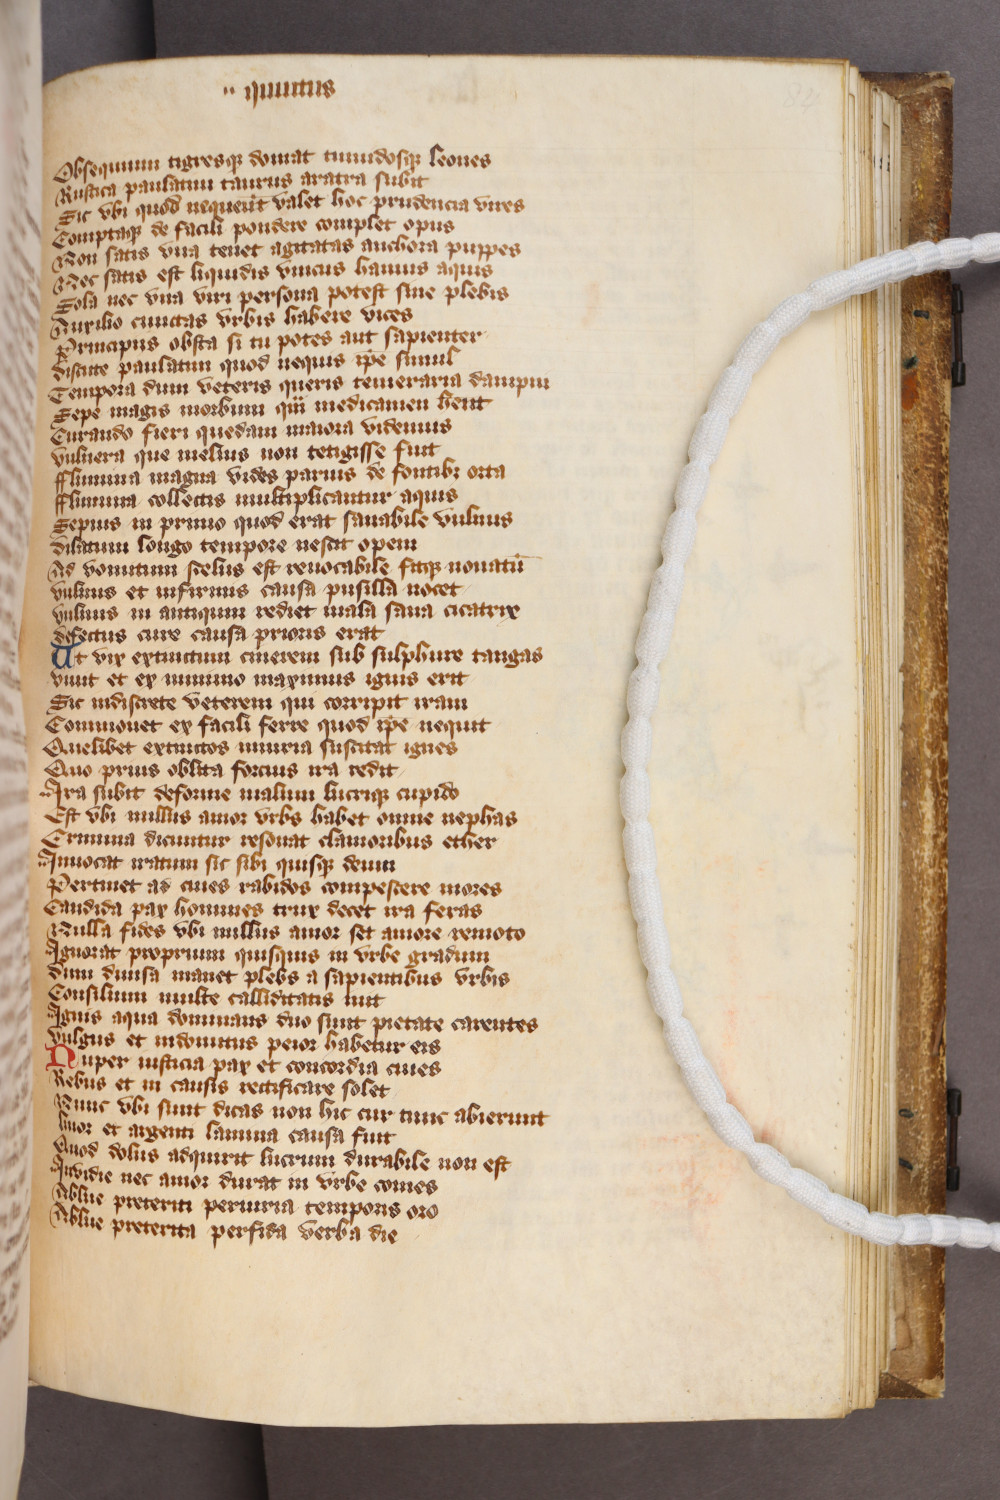 quintus
84
Obsequium tigresqz domat tumidosqz leones
Rustica paulatim taurus aratra subit
Sic vbi quod nequeūt valet hoc prudencia vires
Comptaqz de facili pondere complet opus
Non satis vna tenet agitatas anchora puppes
Nec satis est liquidis vnicus hamus aquis
Sola nec vna viri persona potest sine plebis
Auxilio cunctas vrbis habere vices
Principiis obsta si tu potes aut sapienter
discute paulatim quod nequis ip̄e simul
Tempora dum veteris queris temeraria dampni
Sepe magis morbum q̄m medicamen hēnt
Curando fieri quedam maiora videmus
vulnera que melius non tetigisse fuit
fflumina magna vides paruis de fontibz orta
fflumina collectis multiplicantur aquis
Sepius in primo quod erat sanabile vulnus
dilatum longo tempore nescit opem
Ad vomitum scelus est reuocabile sitqz nouatū
vulnus et infirmis causa pusilla nocet
vulnus in antiquum rediet mala sana cicatrix
defectus cure causa prioris erat
Ut vix extinctum cinerem sub sulphure tangas
viuit et ex minimo maximus ignis erit
Sic indiscrete veterem qui corripit iram
Commouet ex facili ferre quod ip̄e nequit
Quelibet extinctos iniuria suscitat ignes
Quo prius oblita forcius ira redit
Ira subit deforme malum lucriqz cupido
Est vbi nullus amor vrbs habet omne nephas
Crimina dicuntur resonat clamoribus ether
Inuocat iratum sic sibi quisqz deum
Pertinet ad ciues rabidos compescere mores
Candida pax homines trux decet ira feras
Nulla fides vbi nullus amor set amore remoto
Ignorat proprium quisquis in vrbe gradum
dum diuisa manet plebs a sapientibus vrbis
Consilium multe calliditatis init
Ignis aqua dominans duo sunt pietate carentes
vulgus et indomitus peior habetur eis
Nuper iusticia pax et concordia ciues
Rebus et in causis rectificare solet
Nunc vbi sunt dicas non hic cur tunc abierunt
liuor et argenti lamina causa fuit
Quod dolus adquirit lucrum durabile non est
Inuidie nec amor durat in vrbe comes
Ablue preteriti periuria temporis oro
Ablue preterita perfida verba die